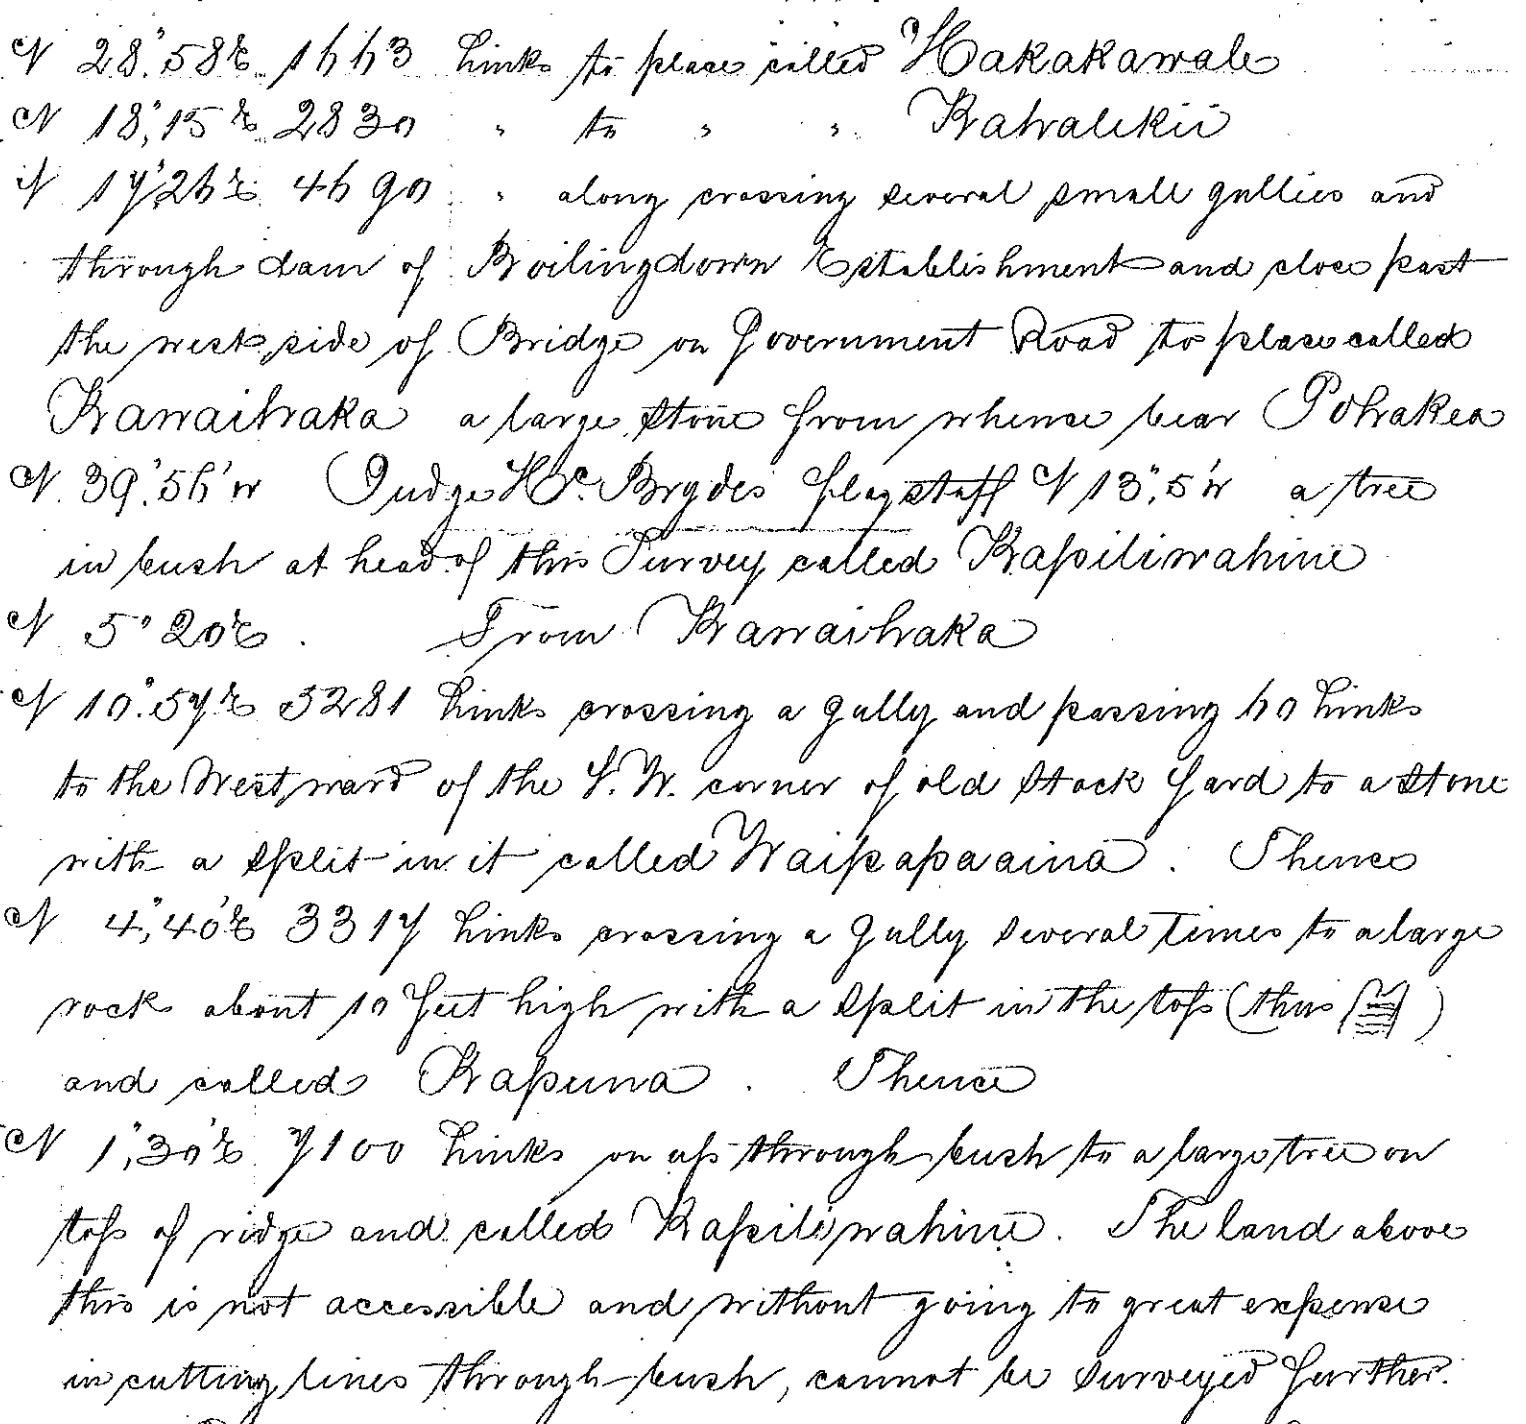 N 28°.58'E 1663 Links to place called Hakakawale
N 18°,15'E 2830 " to " " Kahalekii
N 17°,26'E 4690 " along crossing several small gullies and
through dam of Boilingdown Establishment and close past
the west side of Bridge on Government Road to place called
Kawaihaka a large stone from whence bear Pohakea
N. 39°.56'W Judge Mc. Brydes flagstaff N 13°,5'W a tree
in bush at head of this Survey called Kapiliwahine
N 5° 20'E. From Kawaihaka
N 10°.57'E 3281 Links crossing a gully and passing 60 Links
to the Westward of the S.W. corner of old Stock Yard to a stone
with a split in it called Waipapaaina. Thence
N 4°,40'E 3317 Links crossing a Gully several times to a large
rock about 10 feet high with a split in the top (thus )
and called Kapuna. Thence
N 1°,30'E 7100 Links on up through bush to a large tree on
top of ridge and called Kapiliwahine. The land above
this is not accessible and without going to great expense
in cutting lines through bush, cannot be surveyed further.